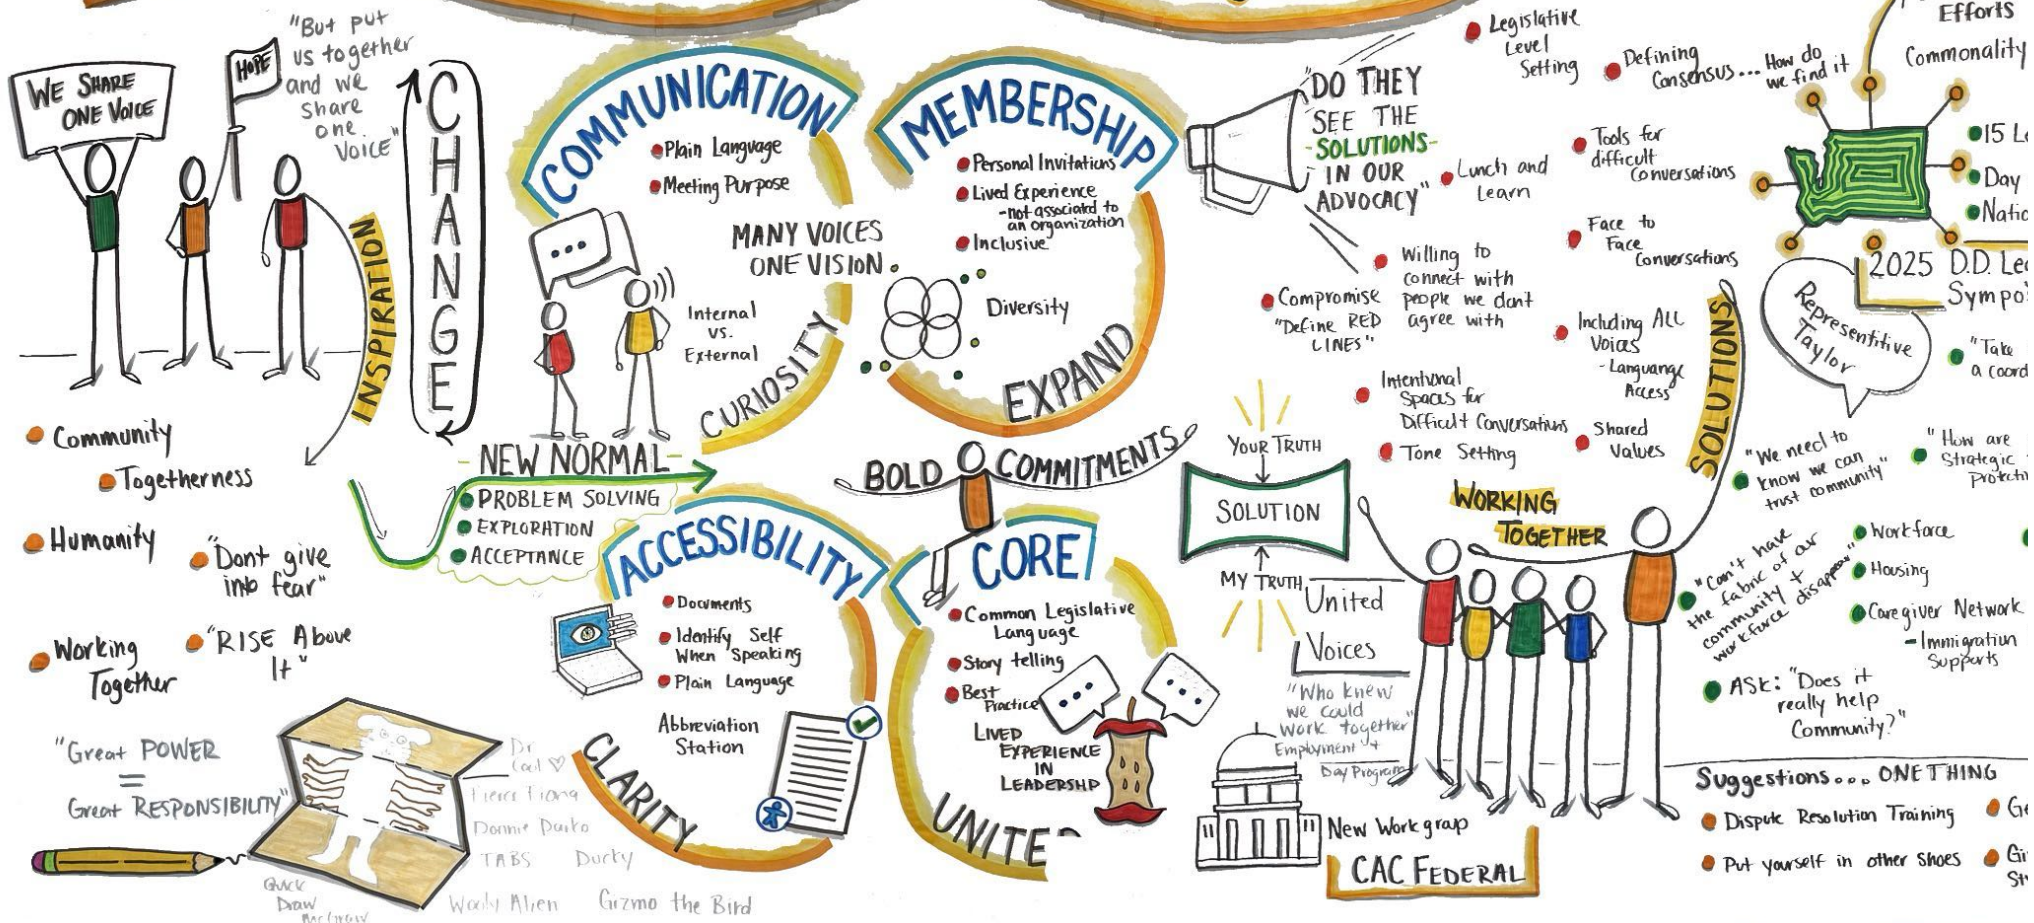 "But put
us together
and we
share
one
voice"
WE SHARE
ONE VOICE
HOPE
INSPIRATION
CHANGE
Community
Togetherness
Humanity
"Dont give
into fear"
Working
Together
"RISE Above
It"
"Great POWER
=
Great RESPONSIBILITY"
Quick
Draw
Dr
Fierce
Donnie Darko
TABS
Ducky
Wooly Alien
Gizmo the Bird
COMMUNICATION
Plain Language
Meeting Purpose
MANY VOICES
ONE VISION
Internal
vs.
External
CURIOSITY
NEW NORMAL
PROBLEM SOLVING
EXPLORATION
ACCEPTANCE
MEMBERSHIP
Personal Invitations
Lived Experience
-not associated to
an organization
Inclusive
Diversity
EXPAND
BOLD COMMITMENTS
ACCESSIBILITY
Documents
Identify Self
When Speaking
Plain Language
Abbreviation
Station
CLARITY
CORE
Common Legislative
Language
Story telling
Best
Practice
LIVED
EXPERIENCE
IN
LEADERSHP
UNITE
"DO THEY
SEE THE
-SOLUTIONS-
IN OUR
ADVOCACY"
Legislative
Level
Setting
Defining
Consensus... How do
we find it
Tools for
difficult
Conversations
Lunch and
Learn
Face to
Face
Conversations
Willing to
connect with
people we dont
agree with
Compromise
"Define RED
LINES"
Including ALL
Voices
-Languange
Access
Intentional
Spaces for
Difficult Conversations
Tone Setting
Shared
Values
SOLUTIONS
YOUR TRUTH
SOLUTION
MY TRUTH
WORKING
TOGETHER
United
Voices
"Who knew
we could
work together"
Employment +
Day Program
New Workgrap
CAC FEDERAL
Efforts
Commonality
15 Le
Day
Natio
2025 D.D. Leg
Sympo
Representitive
Taylor
"Take
a coord
"We need to
know we can
trust community"
"How are
Strategic
protecti
"Can't have
the fabric of our
community +
workforce disappear"
Workforce
Housing
Caregiver Network
-Immigration
Supports
ASK: "Does it
really help
Community?"
Suggestions... ONE THING
Dispute Resolution Training
Put yourself in other shoes
Ge
Gi